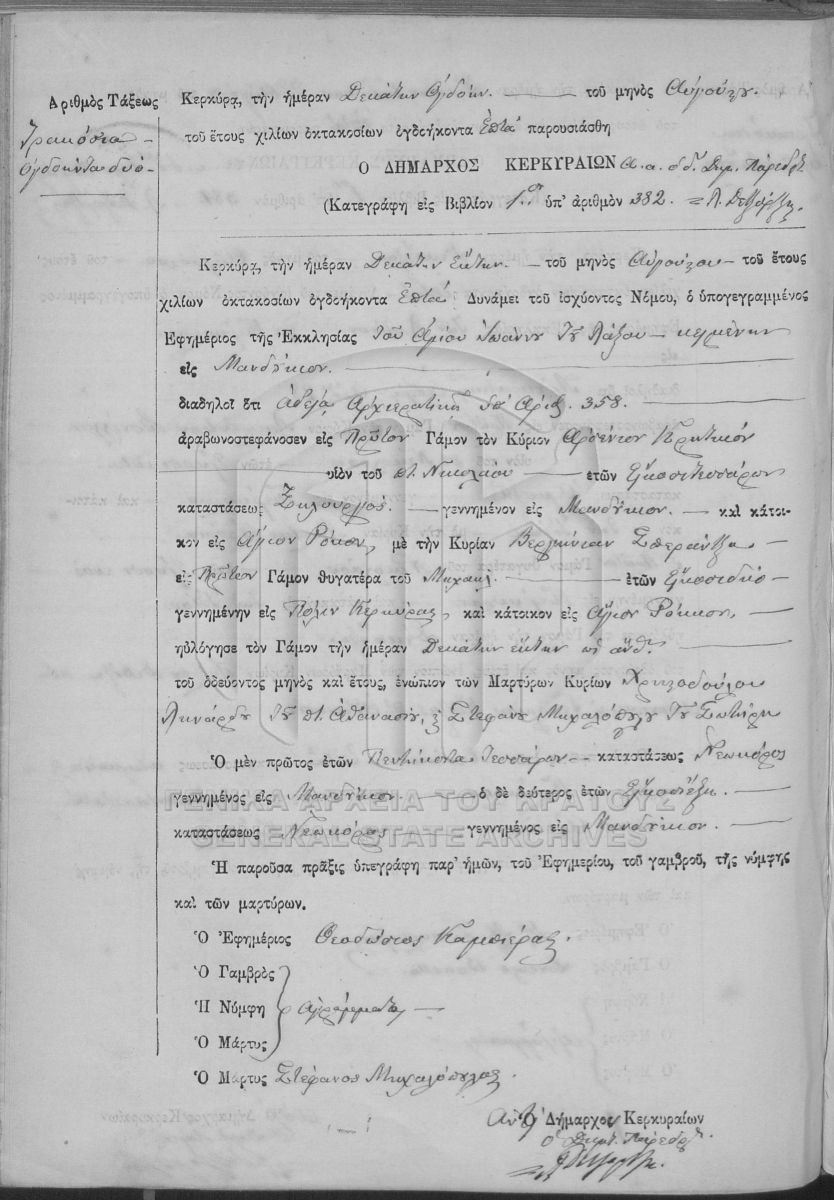 Ἀριθμὸς Τάξεως
Τριακόσια
Ὀγδοήκοντα δύο
Κερκύρᾳ, τὴν ἡμέραν Δεκάτην Ὀγδόην. τοῦ μηνὸς Αὐγούστου.
τοῦ ἔτους χιλίων ὀκτακοσίων ὀγδοήκοντα Ἑπτά παρουσιάσθη
Ὁ ΔΗΜΑΡΧΟΣ ΚΕΡΚΥΡΑΙΩΝ Δημ. Πάρεδρ.
(Κατεγράφη εἰς Βιβλίον 1ον ὑπ' ἀριθμὸν 382.
Κερκύρᾳ, τὴν ἡμέραν Δεκάτην Ἕκτην. τοῦ μηνὸς Αὐγούστου τοῦ ἔτους
χιλίων ὀκτακοσίων ὀγδοήκοντα Ἑπτά Δυνάμει τοῦ ἰσχύοντος Νόμου, ὁ ὑπογεγραμμένος
Ἐφημέριος τῆς Ἐκκλησίας τοῦ Ἁγίου Ἰωάννου τοῦ Λάζου κειμένην
εἰς Μανδύκιον.
διαδηλοῖ ὅτι ἀδείᾳ Ἀρχιερατικῇ ὑπ' Ἀριθ. 358.
ἀραβωνοστεφάνοσεν εἰς Πρῶτον Γάμον τὸν Κύριον Ἀρσένιον Κρητικόν
υἱὸν τοῦ Νικολάου ἐτῶν Εἴκοσιτεσσάρων
καταστάσεως Ξυλουργός. γεννημένον εἰς Μανδύκιον. καὶ κάτοι-
κον εἰς Ἅγιον Ρόκον, μὲ τὴν Κυρίαν Σπεράντζα
εἰς Πρῶτον Γάμον θυγατέρα τοῦ Μιχαήλ. ἐτῶν Εἴκοσιδύο
γεννημένην εἰς Πόλιν Κερκύρας καὶ κάτοικον εἰς Ἅγιον Ρόκκον,
ηὐλόγησε τὸν Γάμον τὴν ἡμέραν Δεκάτην ἕκτην ὡς ἄνω.
τοῦ ὁδεύοντος μηνὸς καὶ ἔτους, ἐνώπιον τῶν Μαρτύρων Κυρίων Χριστοδούλου
Λινάρδου τοῦ Ἀθανασίου, Στεφάνου Μιχαλοπούλου τοῦ Σωτήρη
Ὁ μὲν πρῶτος ἐτῶν Πεντήκοντα Τεσσάρων καταστάσεως Νεωκόρος
γεννημένος εἰς Μανδύκιον ὁ δὲ δεύτερος ἐτῶν Εἴκοσιέξη.
ΓΕΝΙΚΑ ΑΡΧΕΙΑ ΤΟΥ ΚΡΑΤΟΥΣ
καταστάσεως Νεωκόρος γεννημένος εἰς Μανδύκιον.
GENERAL STATE ARCHIVES
Ἡ παροῦσα πρᾶξις ὑπεγράφη παρ' ἡμῶν, τοῦ Ἐφημερίου, τοῦ γαμβροῦ, τῆς νύμφης
καὶ τῶν μαρτύρων.
Ὁ Ἐφημέριος Θεοδόσιος
Ὁ Γαμβρὸς
Ἡ Νύμφη ἀγράμματοι
Ὁ Μάρτυς
Ὁ Μάρτυς Στέφανος Μιχαλόπουλος.
Ὁ Δήμαρχος Κερκυραίων
ὁ Δημ. Πάρεδρ.